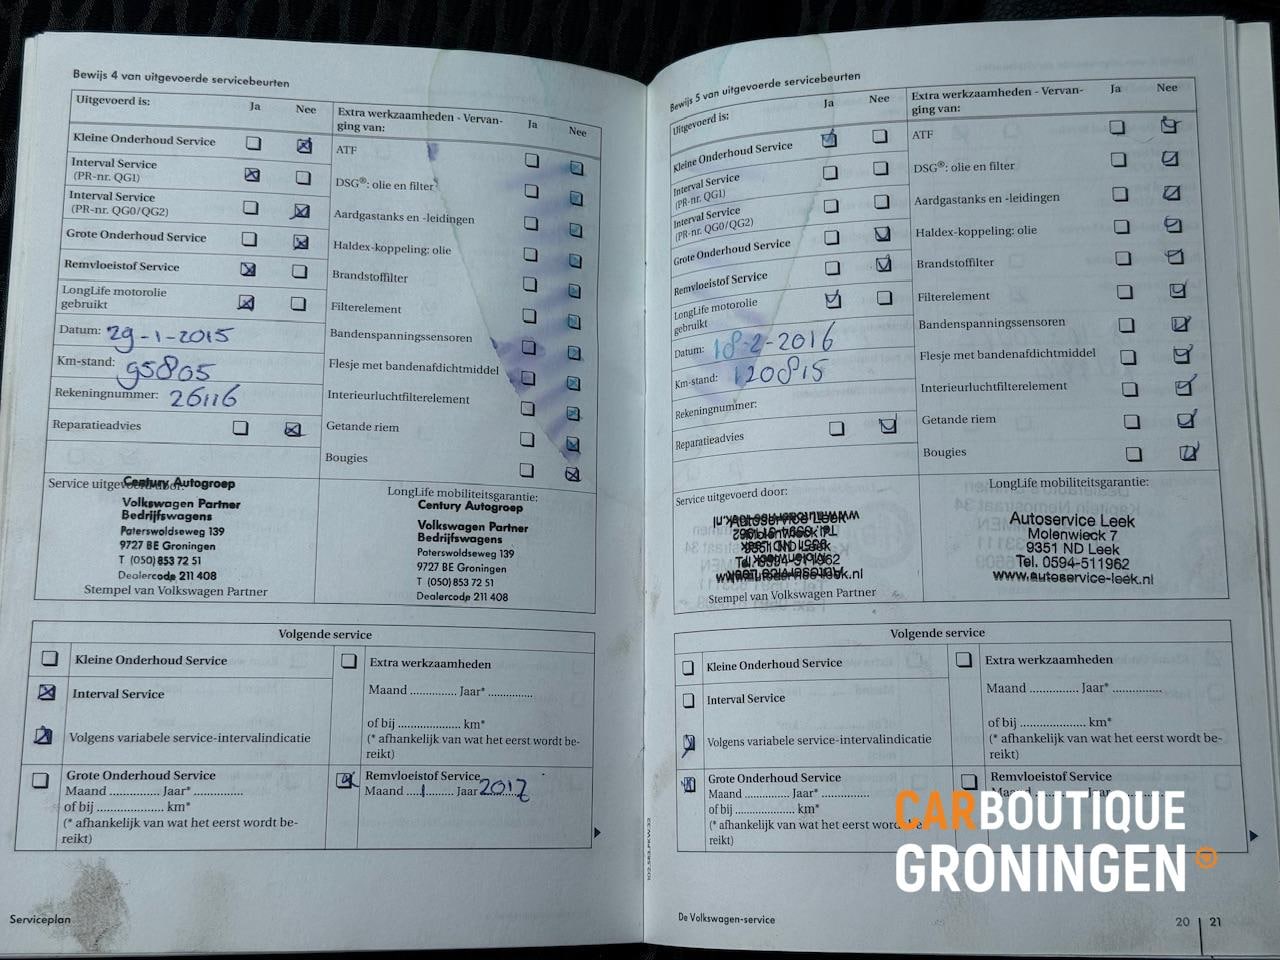 Bewijs 4 van uitgevoerde servicebeurten
Uitgevoerd is: Ja Nee
Kleine Onderhoud Service
Interval Service
(PR-nr. QG1)
Interval Service
(PR-nr. QG0/QG2)
Grote Onderhoud Service
Remvloeistof Service
LongLife motorolie
gebruikt
Datum: 29-1-2015
Km-stand: 95805
Rekeningnummer: 26116
Reparatieadvies
Extra werkzaamheden - Vervan-
ging van: Ja Nee
ATF
DSG®: olie en filter
Aardgastanks en -leidingen
Haldex-koppeling: olie
Brandstoffilter
Filterelement
Bandenspanningssensoren
Flesje met bandenafdichtmiddel
Interieurluchtfilterelement
Getande riem
Bougies
Service uitgevoerd door:
Century Autogroep
Volkswagen Partner
Bedrijfswagens
Paterswoldseweg 139
9727 BE Groningen
T (050) 853 72 51
Dealercode 211 408
Stempel van Volkswagen Partner
LongLife mobiliteitsgarantie:
Century Autogroep
Volkswagen Partner
Bedrijfswagens
Paterswoldseweg 139
9727 BE Groningen
T (050) 853 72 51
Dealercode 211 408
Volgende service
Kleine Onderhoud Service
Interval Service
Volgens variabele service-intervalindicatie
Grote Onderhoud Service
Maand .............. Jaar* ..............
of bij .................... km*
(* afhankelijk van wat het eerst wordt be-
reikt)
Extra werkzaamheden
Maand .............. Jaar* ..............
of bij .................... km*
(* afhankelijk van wat het eerst wordt be-
reikt)
Remvloeistof Service
Maand ....1........ Jaar 2017
Serviceplan
Bewijs 5 van uitgevoerde servicebeurten
Uitgevoerd is: Ja Nee
Kleine Onderhoud Service
Interval Service
(PR-nr. QG1)
Interval Service
(PR-nr. QG0/QG2)
Grote Onderhoud Service
Remvloeistof Service
LongLife motorolie
gebruikt
Datum: 18-2-2016
Km-stand: 120815
Rekeningnummer:
Reparatieadvies
Extra werkzaamheden - Vervan-
ging van: Ja Nee
ATF
DSG®: olie en filter
Aardgastanks en -leidingen
Haldex-koppeling: olie
Brandstoffilter
Filterelement
Bandenspanningssensoren
Flesje met bandenafdichtmiddel
Interieurluchtfilterelement
Getande riem
Bougies
Service uitgevoerd door:
Autoservice Leek
9351 ND Leek
Tel. 0594-511962
www.autoservice-leek.nl
Stempel van Volkswagen Partner
LongLife mobiliteitsgarantie:
Autoservice Leek
Molenwieck 7
9351 ND Leek
Tel. 0594-511962
www.autoservice-leek.nl
Volgende service
Kleine Onderhoud Service
Interval Service
Volgens variabele service-intervalindicatie
Grote Onderhoud Service
Maand .............. Jaar* ..............
of bij .................... km*
(* afhankelijk van wat het eerst wordt be-
reikt)
Extra werkzaamheden
Maand .............. Jaar* ..............
of bij .................... km*
(* afhankelijk van wat het eerst wordt be-
reikt)
Remvloeistof Service
De Volkswagen-service
20 21
CARBOUTIQUE
GRONINGEN